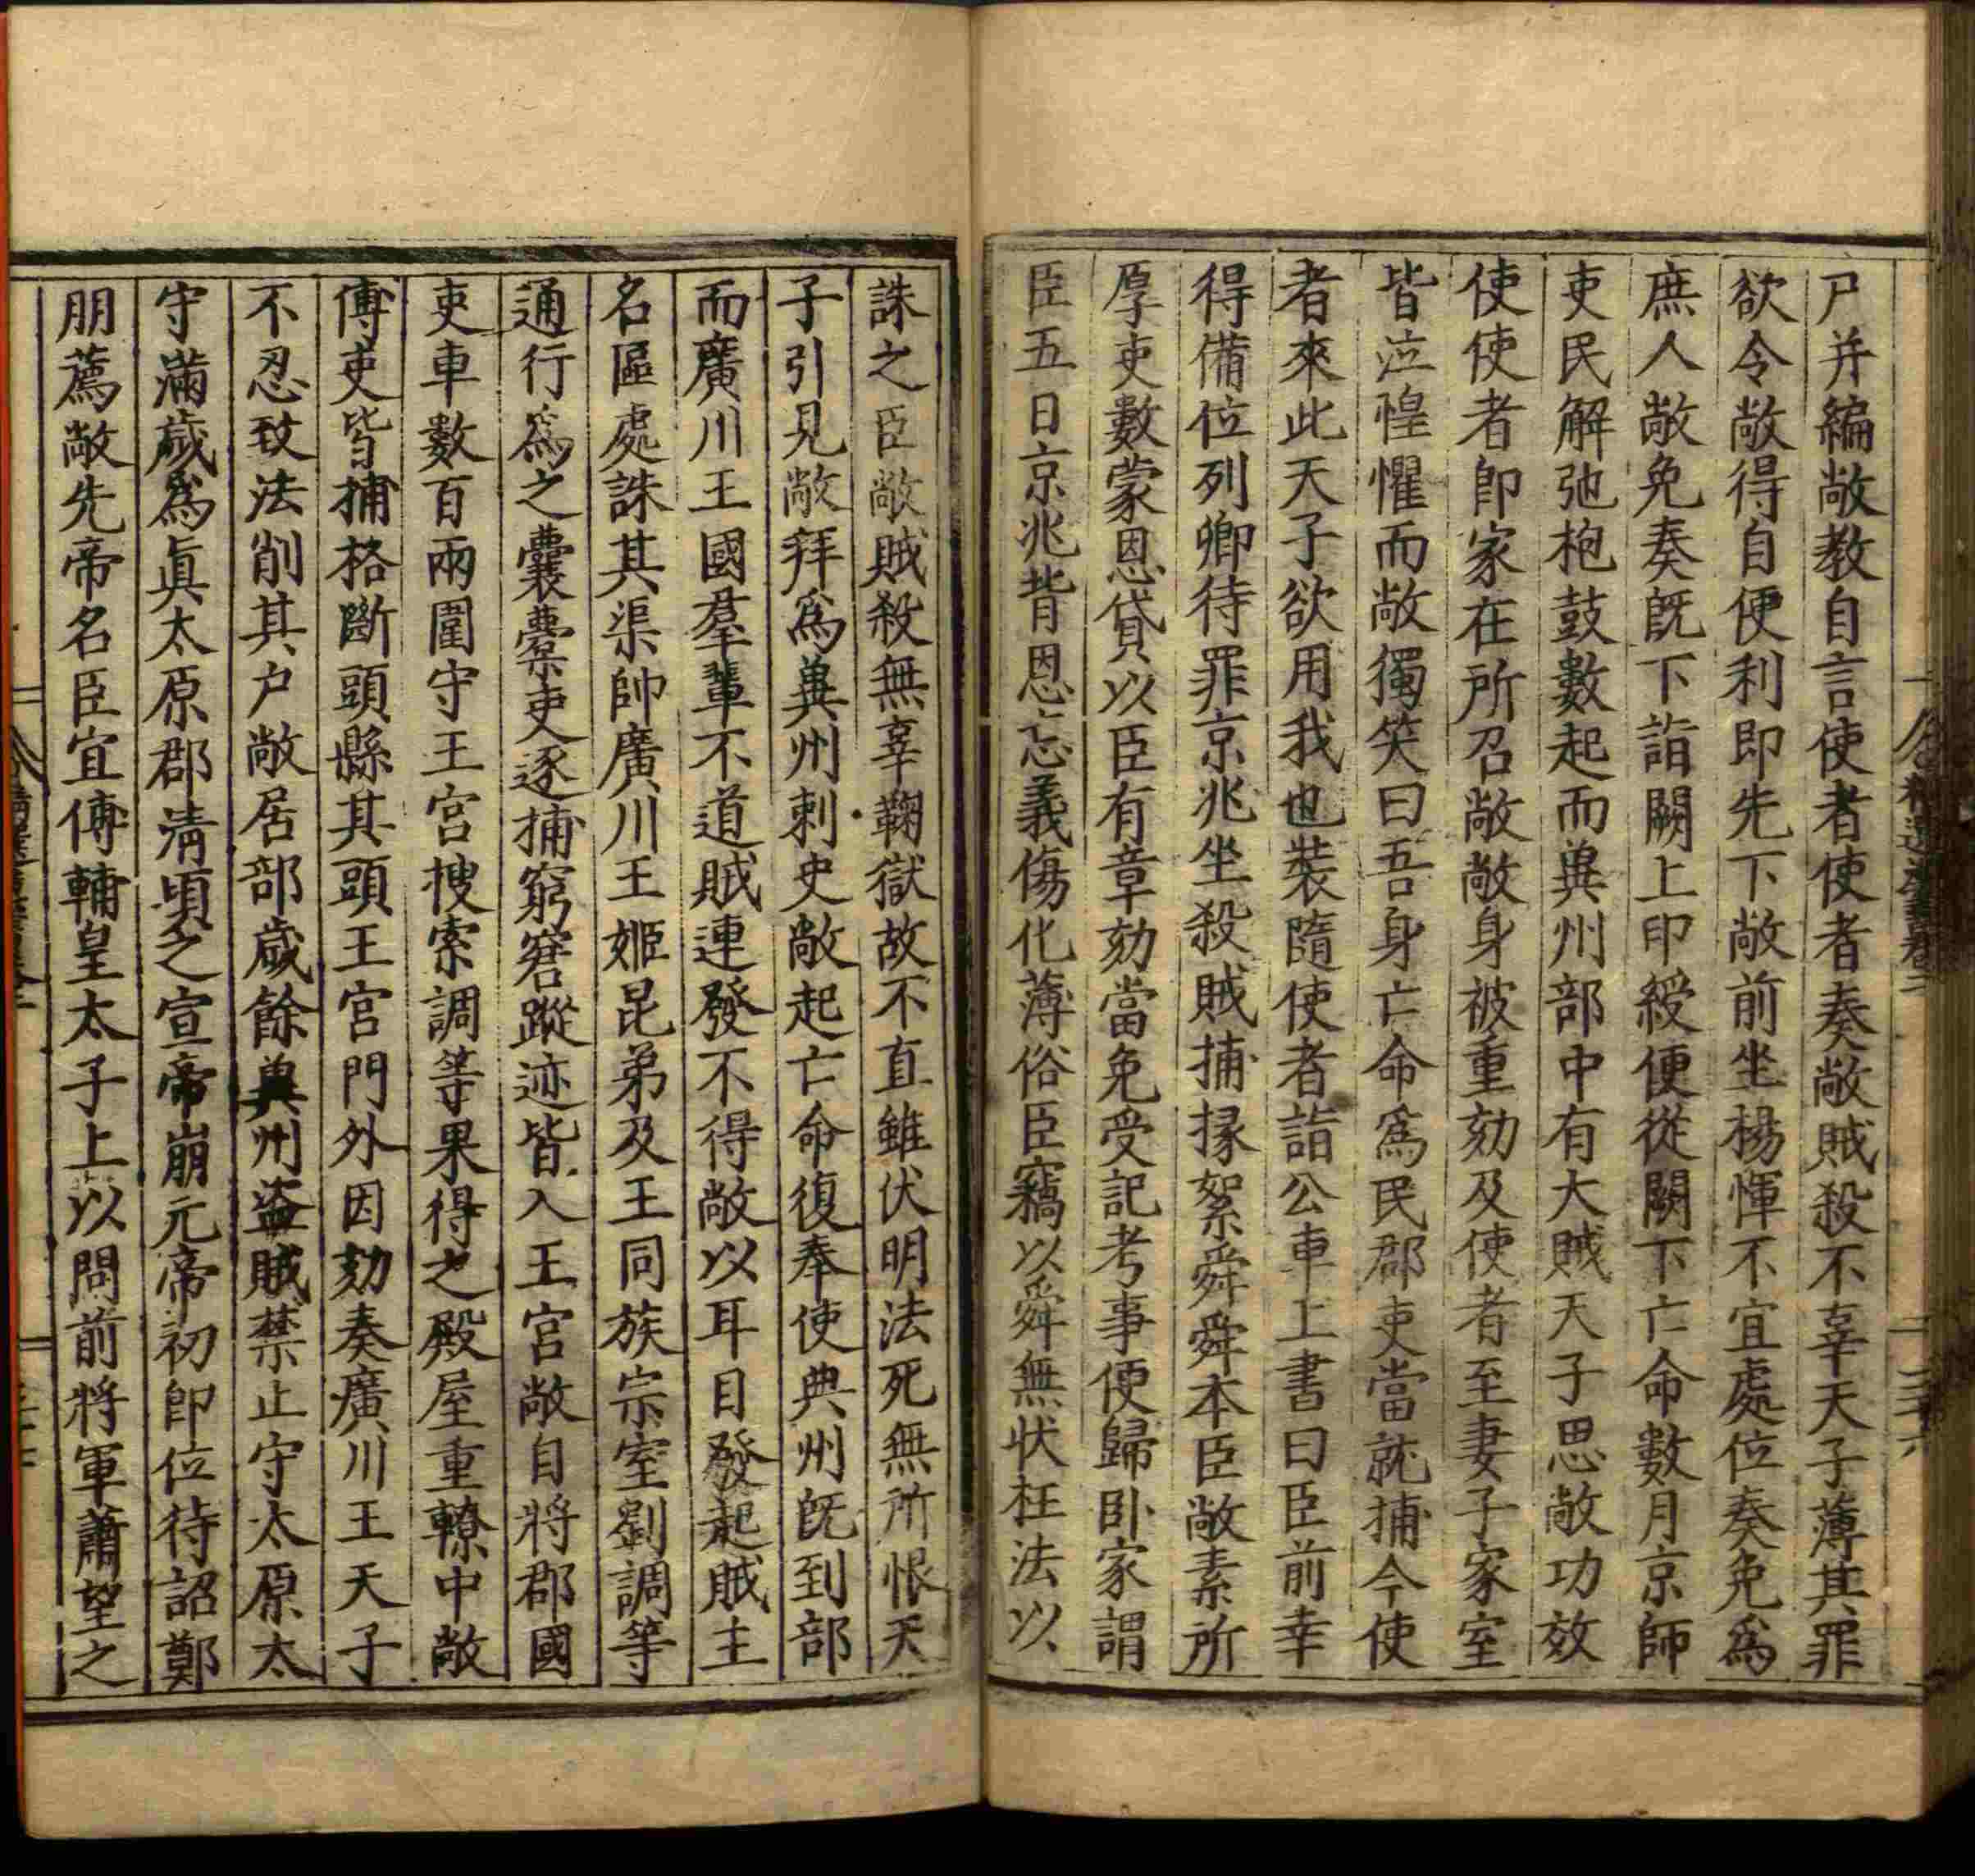 尸并編敞教自言使者使者奏敞賊殺不辜天子薄其罪
欲令敞得自便利即先下敞前坐楊惲不宜處位奏免爲
庶人敞免奏旣下詣闕上印綬便從闕下亡命數月京師
吏民解弛枹鼓數起而兾州部中有大賊天子思敞功效
使使者卽家在所召敞敞身被重劾及使者至妻子家室
皆泣惶懼而敞獨笑曰吾身亡命爲民郡吏當就捕今使
者來此天子欲用我也裝隨使者詣公車上書曰臣前幸
得備位列卿待罪京兆坐殺賊捕掾絮舜舜本臣敞素所
厚吏數蒙恩貸以臣有章劾當免受記考事便歸卧家謂
臣五日京兆背恩忘義傷化薄俗臣竊以舜無狀枉法以
誅之臣敞賊殺無辜鞠獄故不直雖伏明法死無所恨天
子引見敞拜爲兾州刺史敞起亡命復奉使典州旣到部
而廣川王國羣輩不道賊連發不得敞以耳目發起賊主
名區處誅其渠帥廣川王姬昆弟及王同族宗室劉調等
通行爲之囊橐吏逐捕窮窘蹤迹皆入王宮敞自將郡國
吏車數百兩圍守王宮搜索調等果得之殿屋重轑中敞
傅吏皆捕格斷頭縣其頭王宮門外因劾奏廣川王天子
不忍致法削其户敞居部歲餘兾州盜賊禁止守太原太
守滿歲爲眞太原郡淸頃之宣帝崩元帝初卽位待詔鄭
朋薦敞先帝名臣宜傅輔皇太子上以問前將軍蕭望之